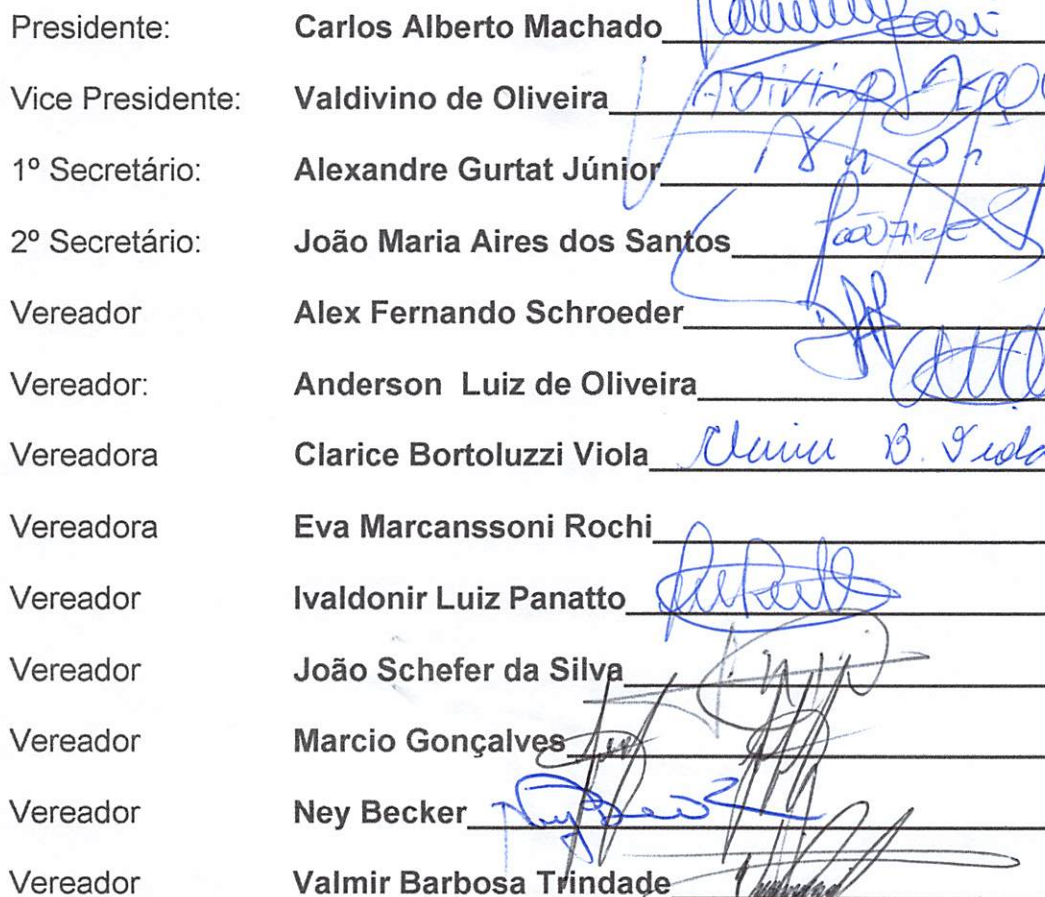 Presidente: Carlos Alberto Machado
Vice Presidente: Valdivino de Oliveira
1º Secretário: Alexandre Gurtat Júnior
2º Secretário: João Maria Aires dos Santos
Vereador Alex Fernando Schroeder
Vereador: Anderson Luiz de Oliveira
Vereadora Clarice Bortoluzzi Viola B.
Vereadora Eva Marcanssoni Rochi
Vereador Ivaldonir Luiz Panatto
Vereador João Schefer da Silva
Vereador Marcio Gonçalves
Vereador Ney Becker Ney
Vereador Valmir Barbosa Trindade